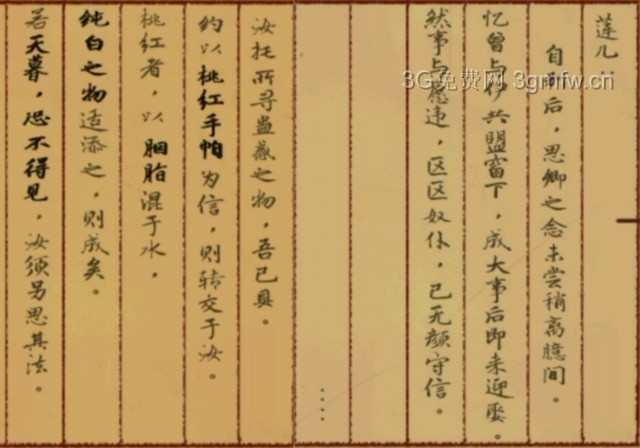 莲儿：
自别后，思卿之念未尝稍离臆间。
忆曾与伊共盟窗下，成大事后即来迎娶。
然事与愿违，区区奴仆，已无颜守信。
....
汝托所寻蛊惑之物，吾已具。
约以桃红手帕为信，则转交于汝。
桃红者，以胭脂混于水，
纯白之物适添之，则成矣。
若天暮，恐不得见，汝须另思其法。
3G免费网 3gmfw.cn